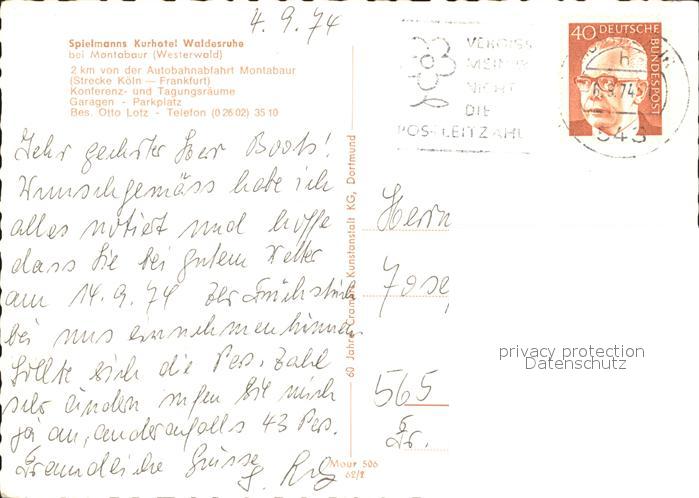 4.9.74
Spielmanns Kurhotel Waldesruhe
bei Montabaur (Westerwald)
2 km von der Autobahnabfahrt Montabaur
(Strecke Köln — Frankfurt)
Konferenz- und Tagungsräume
Garagen - Parkplatz
Bes. Otto Lotz - Telefon (0 26 02) 35 10
Sehr geehrter Herr
Wunschgemäss habe ich
alles notiert und hoffe
dass Sie bei gutem Wetter
am 14.9.74 Ihr Frühstück
bei uns einnehmen können.
Sollte sich die Pers. Zahl
sehr ändern rufen Sie mich
ja an, anderenfalls 43 Pers.
Freundliche Grüsse
60 Jahre Cramers Kunstanstalt KG, Dortmund
Mour 506
62/2
VERGISS
MEIN
NICHT
DIE
POSTLEITZAHL
40 DEUTSCHE
BUNDESPOST
9.74
543
Herrn
Jose
565
Fr.
privacy protection
Datenschutz